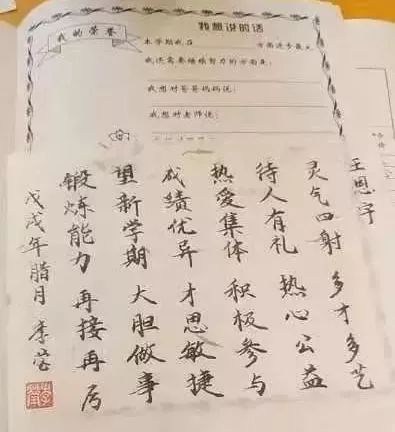 我的荣誉
我想说的话
本学期我在
方面进步最大
我还需要继续努力的方面是:
我想对爸爸妈妈说:
我想对老师说:
王恩宇
灵气四射 多才多艺
待人有礼 热心公益
热爱集体 积极参与
成绩优异 才思敏捷
望新学期 大胆做事
锻炼能力 再接再厉
戊戌年腊月 李莹